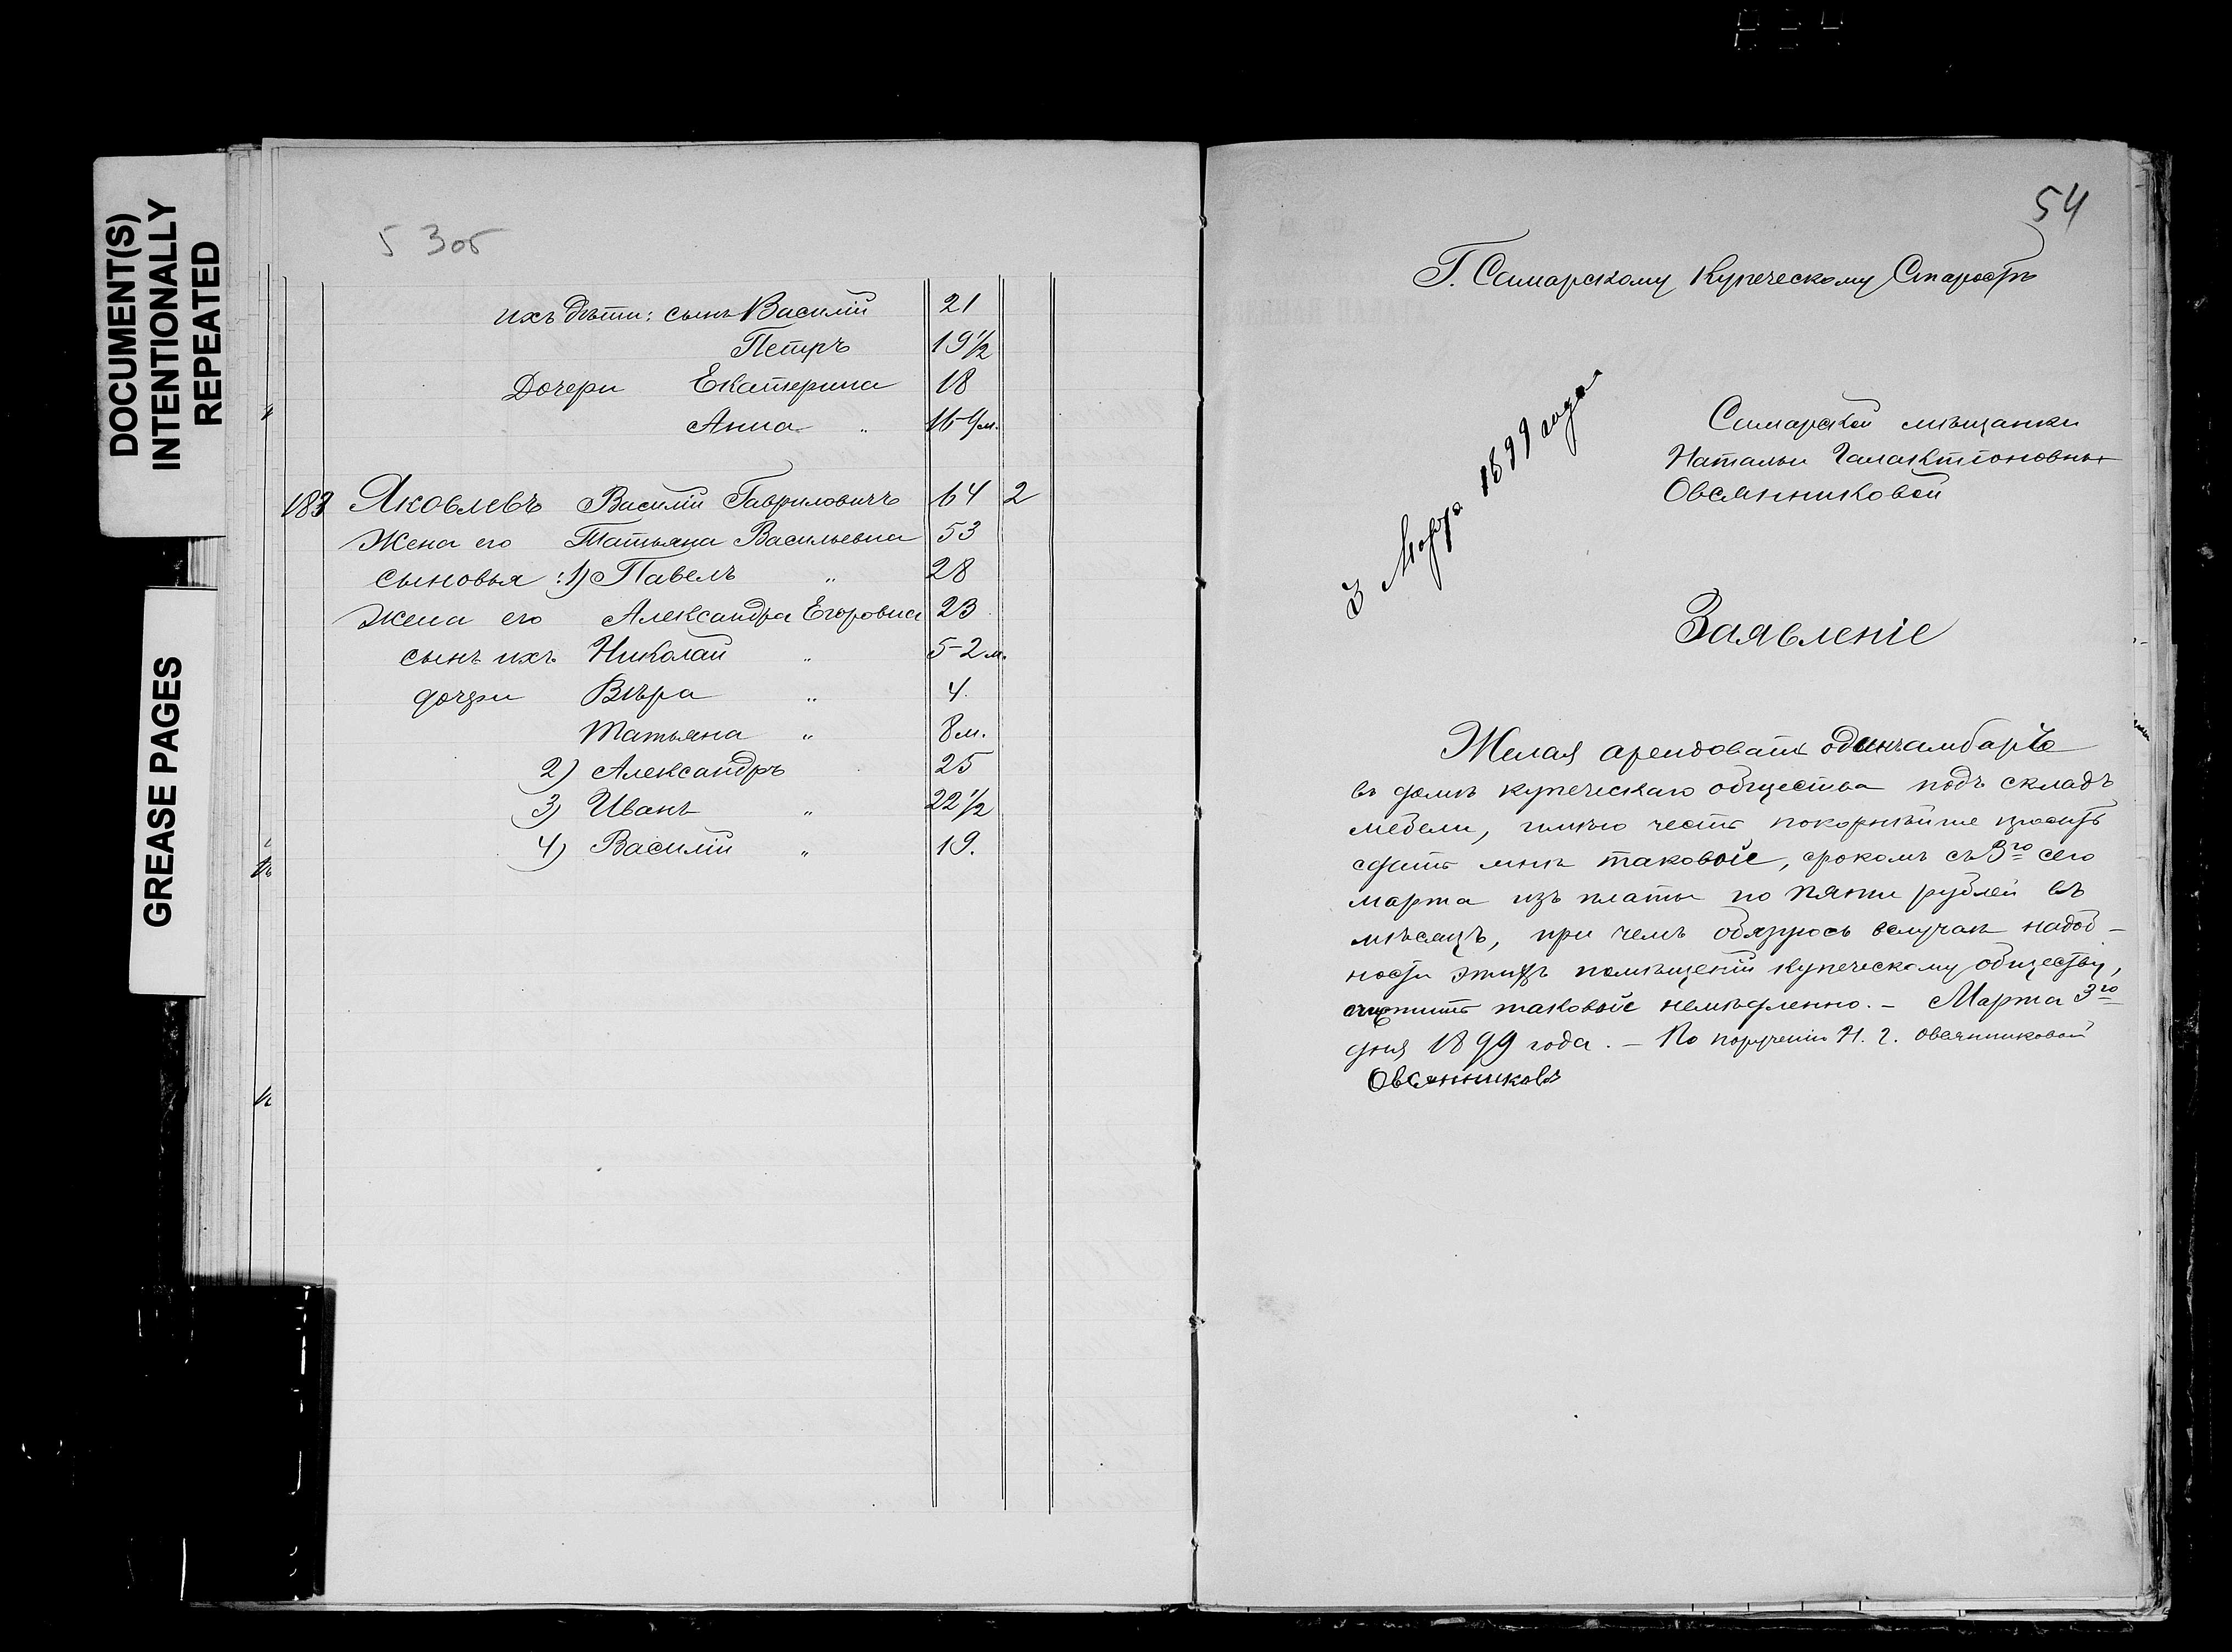 DOCUMENT(S)
INTENTIONALLY
REPEATED
GREASE PAGES
53об
ихъ дѣти: сынъ Василій 21
Петръ 19½
Дочери Екатерина 18
Анна „ 16-9м.
183 Яковлевъ Василій Гавриловичъ 64 2
Жена его Татьяна Васильевна 53
сыновья: 1) Павелъ „ 28
Жена его Александра Егоровна 23
сынъ ихъ Николай „ 5-2м.
дочери Вѣра „ 4.
Татьяна „ 8м.
2) Александръ 25
3) Иванъ „ 22½
4) Василій „ 19.
54
Г. Самарскому Купеческому Старостѣ
3 Марта 1899 года
Самарской мѣщанки
Натальи Галактіоновны
Овсянниковой
Заявленіе
Желая арендовать одинъ амбаръ
въ домѣ купеческаго общества подъ складъ
мебели, имѣю честь покорнѣйше просить
сдать мнѣ таковой, срокомъ съ 3го сего
марта изъ платы по пяти рублей въ
мѣсяцъ, при чемъ обязуюсь вслучаѣ надоб-
ности помѣщеній купеческому обществу,
таковые немѣдленно. – Марта 3го
дня 1899 года. – По порученію Н. Г. Овсянниковой
Овсянниковъ